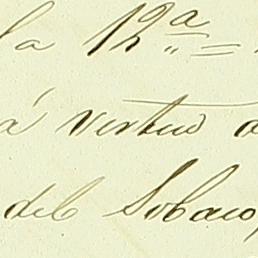 la 12ª =
á virtud d
del Sobaco,